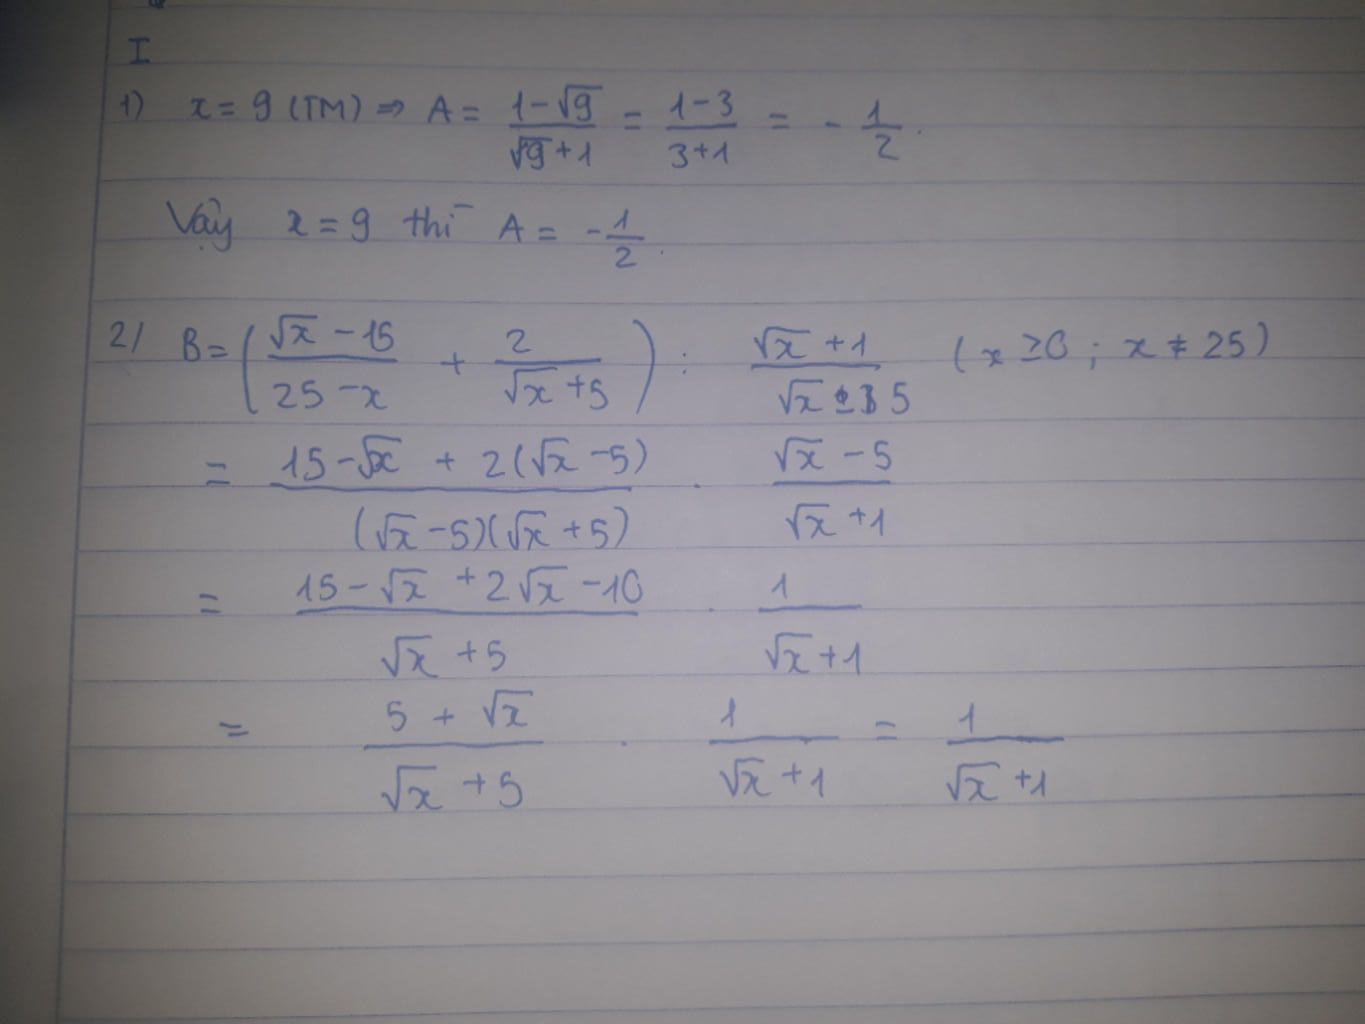 I
1) x = 9 (TM) => A = (1-√9)/(√9+1) = (1-3)/(3+1) = -1/2.
Vậy x = 9 thì A = -1/2.
2/ B = ((√x - 15)/(25 - x) + 2/(√x + 5)) : (√x + 1)/(√x - 5) (x ≥ 0 ; x ≠ 25)
= (15 - √x + 2(√x - 5))/((√x - 5)(√x + 5)) . (√x - 5)/(√x + 1)
= (15 - √x + 2√x - 10)/(√x + 5) . 1/(√x + 1)
= (5 + √x)/(√x + 5) . 1/(√x + 1) = 1/(√x + 1)